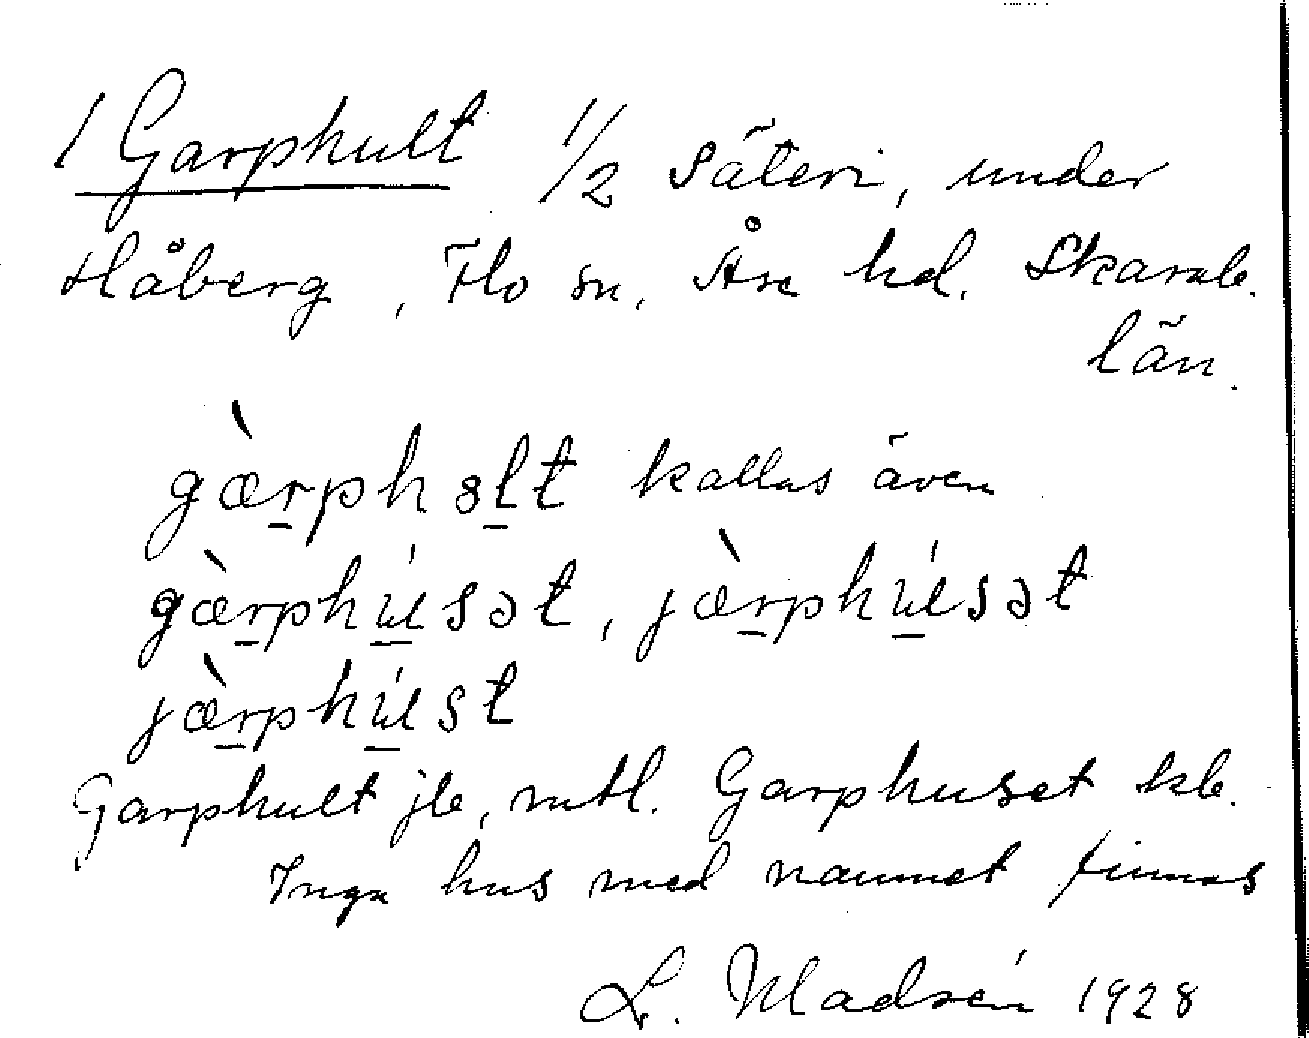 1 Garphult 1/2 säteri, under
Håberg, Flo sn, Åse hd. Skarab.
län.
gæ̀rphɞlt kallas även
gæ̀rphu̍sət, jæ̀rphu̍sət
jæ̀rphu̍st
Garphult jb, mtl. Garphuset kb.
Inga hus med namnet finnas
L. Madsén 1928